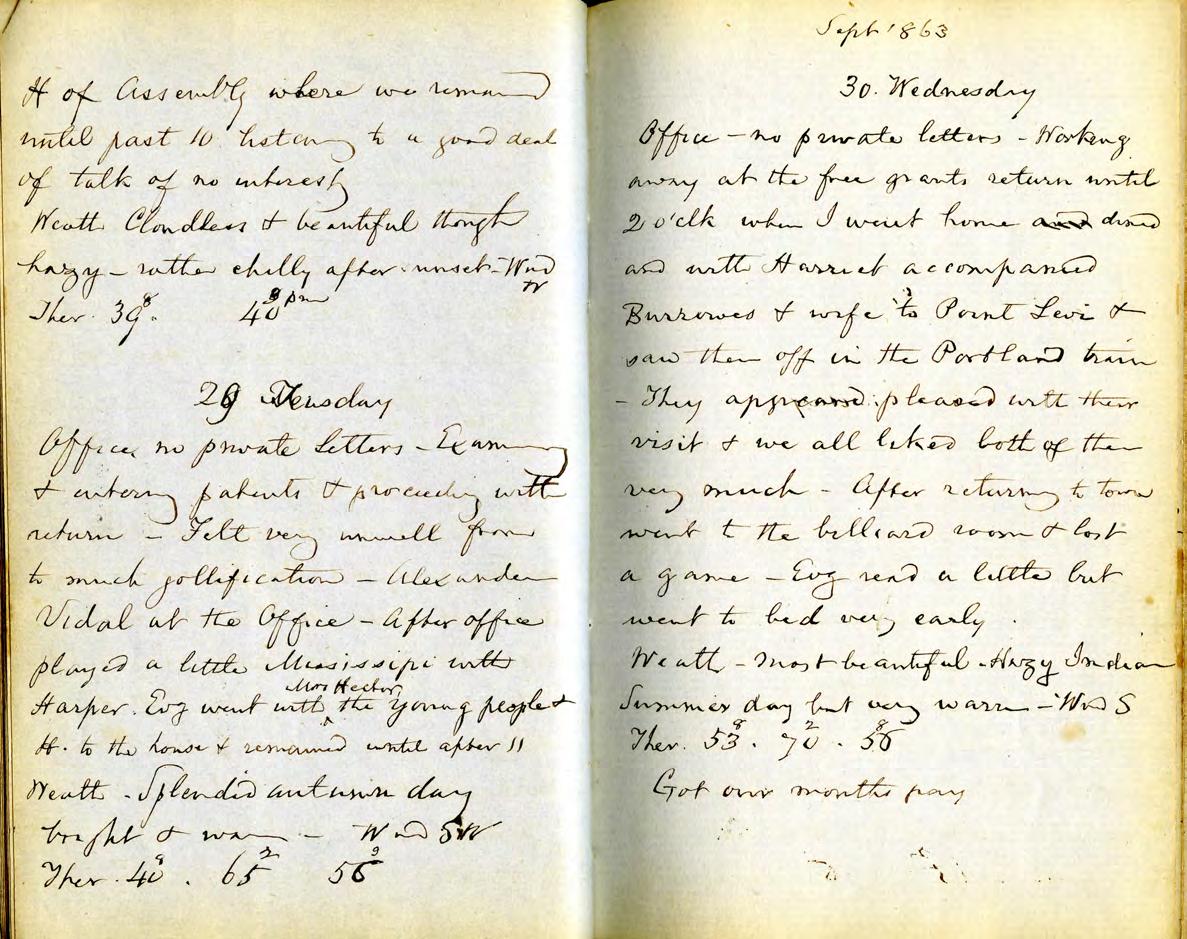 H of Assembly where we remained
until past 10 listening to a good deal
of talk of no interest
Weath Cloudless & beautiful though
hazy - rather chilly after sunset - Wind
W
Ther. 39⁸. 40⁹ pm
29 Tuesday
Office, no private letters - Examining
& entering patents & proceeding with
return - Felt very unwell from
to much jollification - Alexander
Vidal at the Office - After office
played a little Missisipi with
Harper. Evg went with Mrs Hector the young people &
H. to the house & remained until after 11
Weath - Splendid autumn day
bright & warm - Wind SW
Ther. 40⁸. 65² 56⁹
Sept 1863
30. Wednesday
Office - no private letters - Working
away at the free grants return until
2 o'clk when I went home and dined
and with Harriet accompanied
Burrowes & wife to Point Levi &
saw them off in the Portland train
- They appeared pleased with their
visit & we all liked both of them
very much - After returning to town
went to the billiard room & lost
a game - Evg read a little but
went to bed very early.
Weath - most beautiful - Hazy Indian
Summer day but very warm - Wind S
Ther. 53⁸. 70². 56⁸
Got our months pay